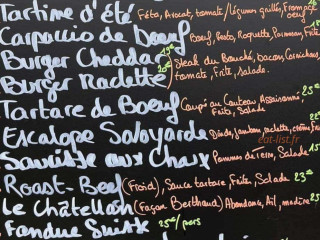 Tartine d'été Féta, Avocat, tomate/légumes grillés, Fromage, oeuf
Carpaccio de Boeuf Boeuf, Pesto, Roquette, Parmesan, Frite
Burger Cheddar 19€ Steak du Bouché, Bacon, Cornichons,
Burger Raclette 20€ tomate, Frite, Salade.
Tartare de Boeuf Coupé au Couteau Assaisonné 25€
Frite, Salade
Escalope Savoyarde Dinde, Jambon, raclette, crème, 22
eat-list.fr
Saucisse aux Choux Pommes de terre, Salade 15
Roast-Beef (Froid), Sauce tartare, Frite, Salade 23€
Le Châtellosh (Façon Berthoud) Abondance, Ail, madère 25
Fondue Suisse 25€/pers